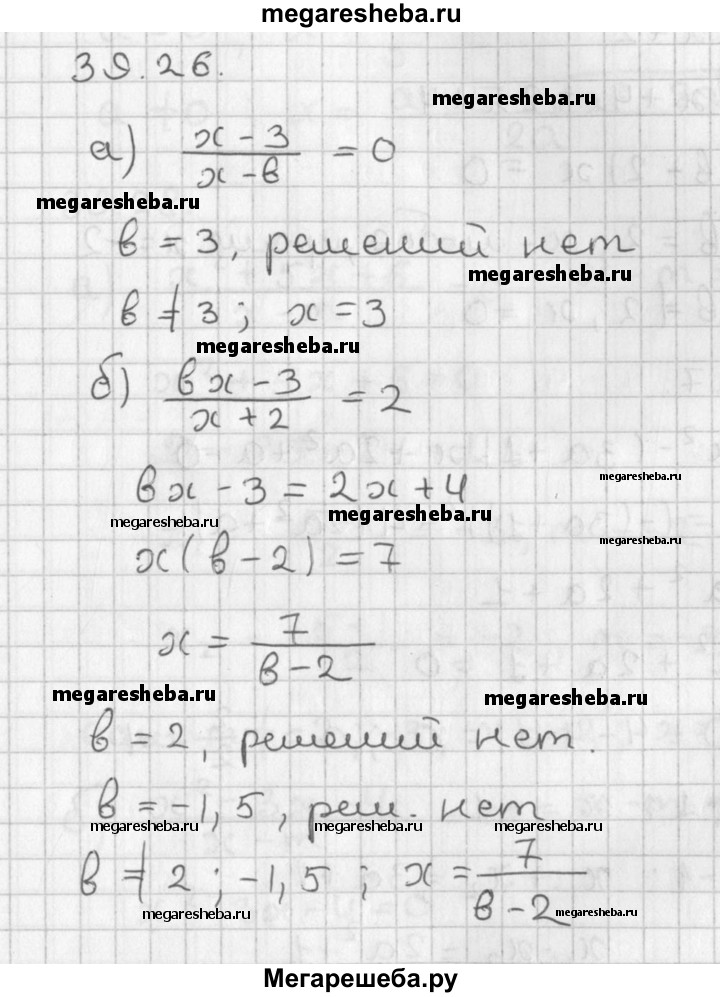 megaresheba.ru
39.26.
megaresheba.ru
а) (x - 3)/(x - в) = 0
megaresheba.ru
в = 3, решений нет
megaresheba.ru
в ≠ 3; x = 3
megaresheba.ru
б) (вx - 3)/(x + 2) = 2
megaresheba.ru
вx - 3 = 2x + 4
megaresheba.ru megaresheba.ru
megaresheba.ru
x(в - 2) = 7
x = 7/(в - 2)
megaresheba.ru megaresheba.ru
в = 2, решений нет.
в = -1,5, реш. нет
megaresheba.ru megaresheba.ru megaresheba.ru
в ≠ 2; -1,5; x = 7/(в - 2)
megaresheba.ru megaresheba.ru
Мегарешеба.ру